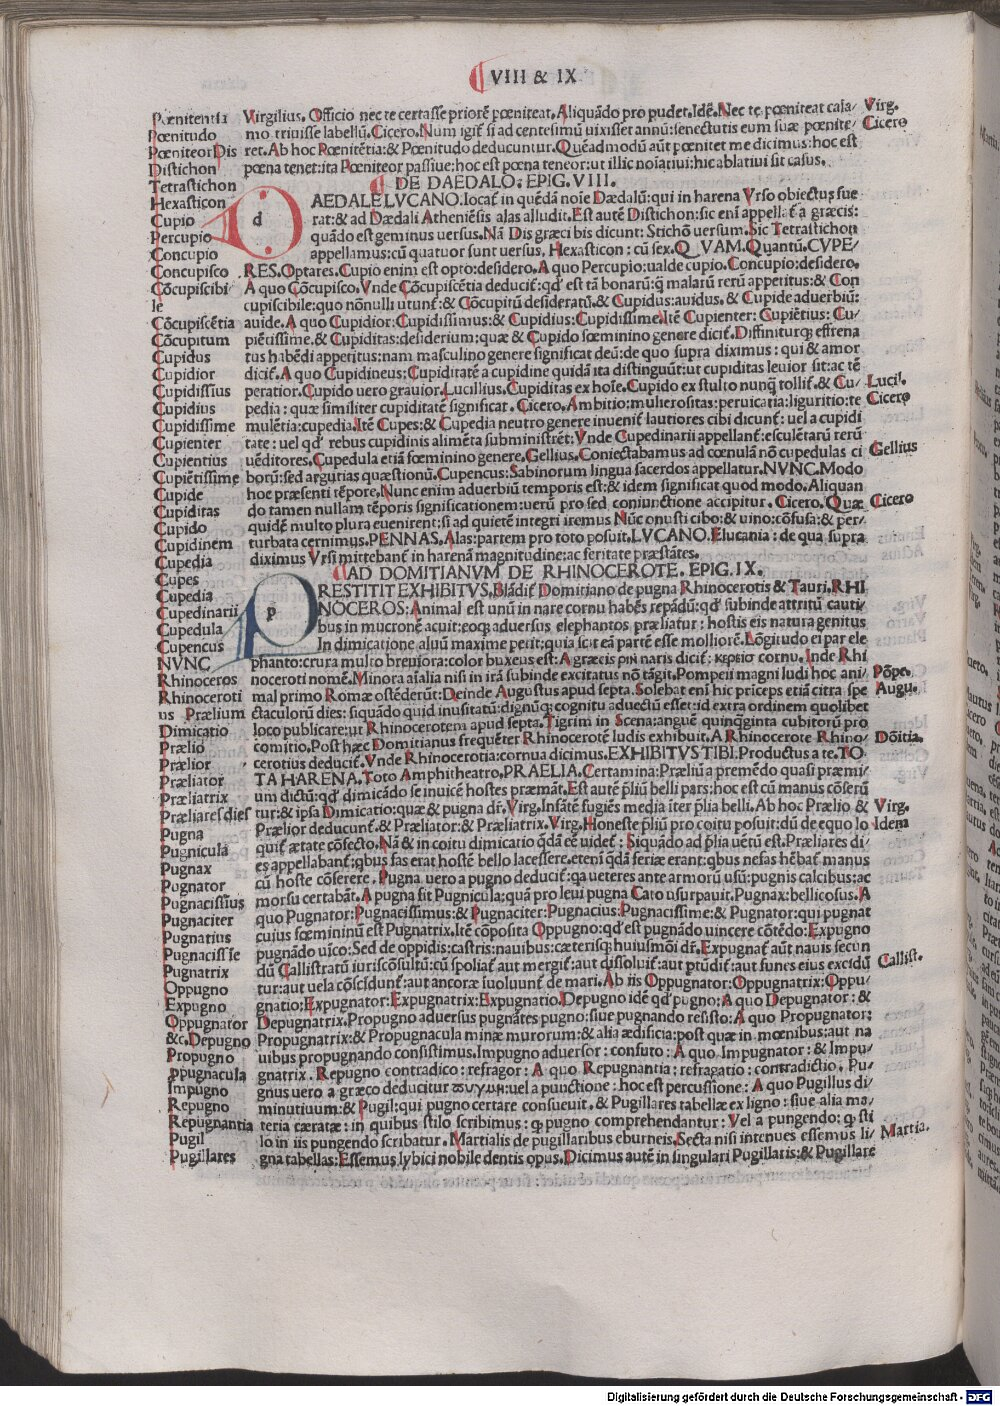 VIII & IX
Virgilius. Officio nec te certasse priorē pœniteat. Aliquādo pro pudet. Idē. Nec te pœniteat cala/
mo triuisse labellū. Cicero. Num igit̄ si ad centesimū uixisset annū: senectutis eum suæ pœnite/
ret. Ab hoc Pœnitētia: & Pœnitudo deducuntur. Quēadmodū aūt pœnitet me dicimus: hoc est
pœna tenet: ita Pœniteor passiue: hoc est pœna teneor: ut illic noiatiui: hic ablatiui sit casus.
DE DAEDALO. EPIG. VIII.
d
DAEDALE LVCANO. locat̄ in quēdā noīe Dædalū: qui in harena Vrso obiectus fue
rat: & ad Dædali Atheniēsis alas alludit. Est autē Distichon: sic enī appellat̄ a græcis:
quādo est geminus uersus. Nā Dis græci bis dicunt: Stichō versum. Sic Tetrastichon
appellamus: cū quatuor sunt uersus. Hexasticon: cū sex. QVAM. Quantū. CVPE/
RES. Optares. Cupio enim est opto: desidero. A quo Percupio: ualde cupio. Concupio: desidero.
A quo Cōcupisco. Vnde Cōcupiscētia deducit̄: qd' est tā bonarū: q̄ malarū rerū appetitus: & Con
cupiscibile: quo nōnulli utunt̄: & Cōcupitū desideratū. & Cupidus: auidus. & Cupide aduerbiū:
auide. A quo Cupidior: Cupidissimus: & Cupidius: Cupidissime. Itē Cupienter: Cupiētius: Cu/
piētissime. & Cupiditas: desiderium: quæ & Cupido fœminino genere dicit̄. Diffiniturq; effrena
tus habēdi appetitus: nam masculino genere significat deū: de quo supra diximus: qui & amor
dicit̄. A quo Cupidineus: Cupiditatē a cupidine quidā ita distinguūt: ut cupiditas leuior sit: ac tē
peratior. Cupido uero grauior. Lucillius. Cupiditas ex hoīe. Cupido ex stulto nunq̄ tollit̄. & Cu/
pedia: quæ similiter cupiditatē significat. Cicero. Ambitio: mulierositas: peruicatia: liguritio: te
mulētia: cupedia. Itē Cupes: & Cupedia neutro genere inuenit̄ lautiores cibi dicunt̄: uel a cupidi
tate: uel qd' rebus cupidinis alimēta subministrēt: Vnde Cupedinarii appellant̄: esculētarū rerū
uēditores. Cupedula etiā fœminino genere. Gellius. Coniectabamus ad cœnulā nō cupedulas ci
borū: sed argutias quæstionū. Cupencus: Sabinorum lingua sacerdos appellatur. NVNC. Modo
hoc præsenti tēpore. Nunc enim aduerbiū temporis est: & idem significat quod modo. Aliquan
do tamen nullam tēporis significationem: uerū pro sed coniunctione accipitur. Cicero. Quæ
quidē multo plura euenirent: si ad quietē integri iremus Nūc onusti cibo: & uino: cōfusa: & per/
turbata cernimus. PENNAS. Alas: partem pro toto posuit. LVCANO. E lucania: de qua supra
diximus Vrsi mittebant̄ in harenā magnitudine: ac feritate præstātes.
AD DOMITIANVM DE RHINOCEROTE. EPIG. IX.
p
PRESTITIT EXHIBITVS. Blādit̄ Domitiano de pugna Rhinocerotis & Tauri. RHI
NOCEROS: Animal est unū in nare cornu habēs repādū: qd' subinde attritū cauti/
bus in mucronē acuit: eoq; aduersus elephantos præliatur: hostis eis natura genitus
In dimicatione aluū maxime petit: quia scit eā partē esse molliorē. Lōgitudo ei par ele
phanto: crura multo breuiora: color buxeus est: A græcis ρινι naris dicit̄: κερεισ cornu. Inde Rhi
noceroti nomē. Minora aialia nisi in irā subinde excitatus nō tāgit. Pompeii magni ludi hoc ani/
mal primo Romæ ostēderūt: Deinde Augustus apud septa. Solebat enī hic priceps etiā citra spe
ctaculorū dies: siquādo quid inusitatū: dignūq; cognitu aduectū esset: id extra ordinem quolibet
loco publicare: ut Rhinocerotem apud septa. Tigrim in Scena: anguē quinq̄ginta cubitorū pro
comitio. Post hæc Domitianus frequēter Rhinocerotē ludis exhibuit. A Rhinocerote Rhino/
cerotius deducit̄. Vnde Rhinocerotia: cornua dicimus. EXHIBITVS TIBI. Productus a te. TO/
TA HARENA. Toto Amphitheatro. PRAELIA. Certamina: Præliū a premēdo quasi præmi/
um dictū: qd' dimicādo se inuicē hostes præmāt. Est autē p̄liū belli pars: hoc est cū manus cōserū
tur: & ipsa Dimicatio: quæ & pugna dr̄. Virg. Insātē fugiēs media iter p̄lia belli. Ab hoc Prælio &
Prælior deducunt̄. & Præliator: & Præliatrix. Virg. Honeste p̄liū pro coitu posuit: dū de equo lo
quit̄ ætate cōfecto. Nā & in coitu dimicatio q̄dā eē uidet̄: Siquādo ad p̄lia uētū est. Præliares di/
es appellabant̄: qbus fas erat hostē bello lacessere. eteni q̄dā feriæ erant: qbus nefas hēbat̄ manus
cū hoste cōserere. Pugna uero a pugno deducit̄: qa ueteres ante armorū usū: pugnis calcibus: ac
morsu certabāt. A pugna fit Pugnicula: quā pro leui pugna Cato usurpauit. Pugnax: bellicosus. A
quo Pugnator: Pugnacissimus: & Pugnaciter: Pugnacius: Pugnacissime: & Pugnator: qui pugnat
cuius fœmininū est Pugnatrix. Itē cōposita Oppugno: qd' est pugnādo uincere cōtēdo: Expugno
pugnādo uico: Sed de oppidis: castris: nauibus: cæterisq; huiusmōi dr̄. Expugnat̄ aūt nauis secun
dū Callistratū iuriscōsultū: cū spoliat̄ aut mergit̄: aut dissoluit̄: aut ptūdit̄: aut funes eius excidū
tur: aut uela cōscīdunt̄: aut ancoræ īuoluunt̄ de mari. Ab iis Oppugnator: Oppugnatrix: Oppu/
gnatio: Expugnator: Expugnatrix: Expugnatio. Depugno idē qd' pugno: A quo Depugnator: &
Depugnatrix. Propugno aduersus pugnātes pugno: siue pugnando resisto: A quo Propugnator:
Propugnatrix: & Propugnacula minæ murorum: & alia ædificia: post quæ in mœnibus: aut na
uibus propugnando consistimus. Impugno aduersor: confuto: A quo Impugnator: & Impu/
gnatrix. Repugno contradico: refragor: A quo Repugnantia: refragatio: contradictio. Pu/
gnus uero a græco deducitur: uel a punctione: hoc est percussione: A quo Pugillus di/
minutiuum: & Pugil: qui pugno certare consueuit. & Pugillares tabellæ ex ligno: siue alia ma/
teria cæratæ: in quibus stilo scribimus: q̄ pugno comprehendantur: Vel a pungendo: q̄ sti
lo in iis pungendo scribatur. Martialis de pugillaribus eburneis. Secta nisi intenues essemus li/
gna tabellas: Essemus lybici nobile dentis opus. Dicimus autē in singulari Pugillaris: & Pugillare
Pœnitentia
Pœnitudo
Pœniteor Dis
Distichon
Tetrastichon
Hexasticon
Cupio
Percupio
Concupio
Concupisco
Cōcupiscibi
le
Cōcupiscētia
Cōcupitum
Cupidus
Cupidior
Cupidissius
Cupidius
Cupidissime
Cupienter
Cupientius
Cupiētissime
Cupide
Cupiditas
Cupido
Cupidinem
Cupedia
Cupes
Cupedia
Cupedinarii
Cupedula
Cupencus
NVNC
Rhinoceros
Rhinoceroti
us Prælium
Dimicatio
Prælio
Prælior
Præliator
Præliatrix
Præliares dies
Pugna
Pugnicula
Pugnax
Pugnator
Pugnacissius
Pugnaciter
Pugnatius
Pugnacissīe
Pugnatrix
Oppugno
Expugno
Oppugnator
&c. Depugno
Propugno
ppugnacula
Impugno
Repugno
Repugnantia
Pugil
Pugillares
Virg.
Cicero
Lucil.
Cicero
Gellius
Cicero
Pōpe.
Augu.
Dōitia.
Virg.
Idem
Callist.
Martia.
Digitalisierung gefördert durch die Deutsche Forschungsgemeinschaft - DFG